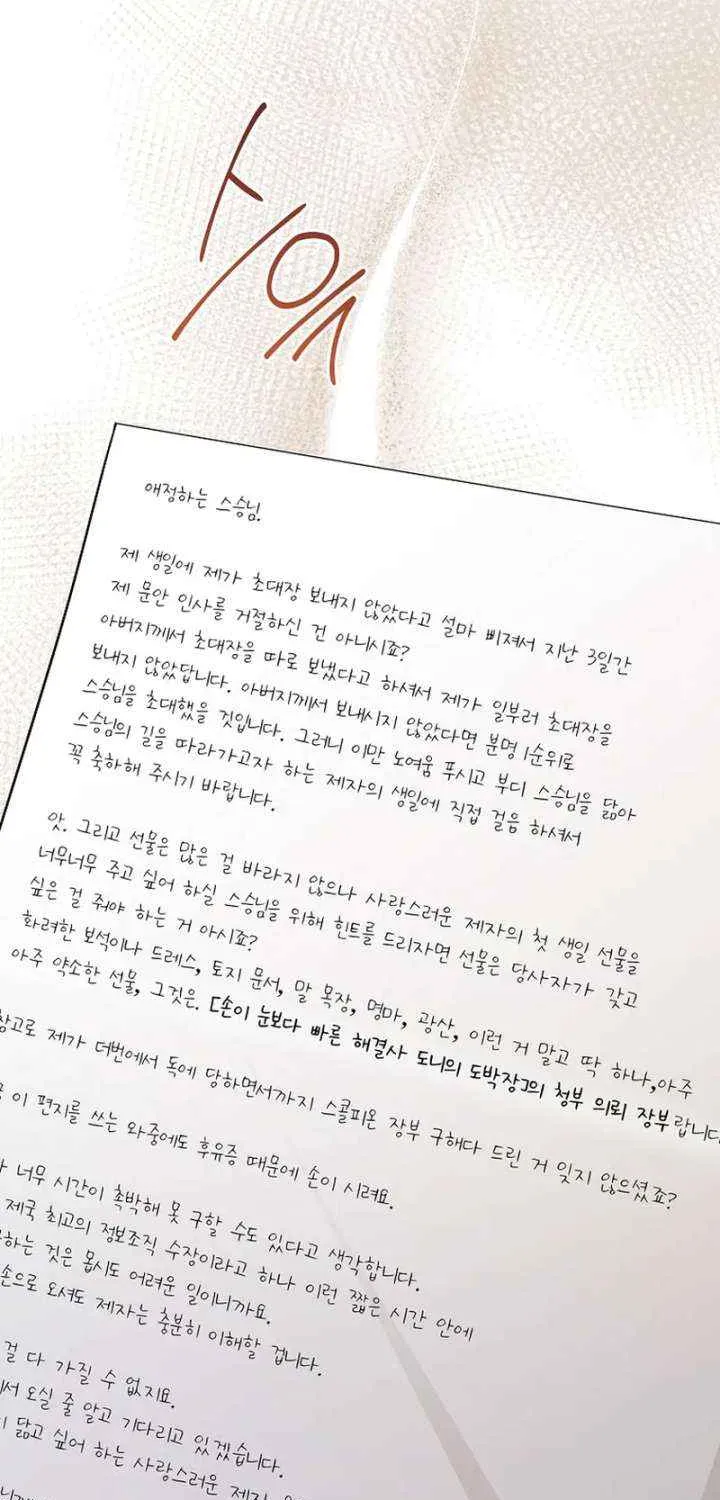 애정하는 스승님.
제 생일에 제가 초대장 보내지 않았다고 설마 삐져서 지난 3일간
제 문안 인사를 거절하신 건 아니시죠?
아버지께서 초대장을 따로 보냈다고 하셔서 제가 일부러 초대장을
보내지 않았답니다. 아버지께서 보내시지 않았다면 분명 1순위로
스승님을 초대했을 것입니다. 그러니 이만 노여움 푸시고 부디 스승님을 닮아
스승님의 길을 따라가고자 하는 제자의 생일에 직접 걸음 하셔서
꼭 축하해 주시기 바랍니다.
앗. 그리고 선물은 많은 걸 바라지 않으나 사랑스러운 제자의 첫 생일 선물을
너무너무 주고 싶어 하실 스승님을 위해 힌트를 드리자면 선물은 당사자가 갖고
싶은 걸 줘야 하는 거 아시죠?
화려한 보석이나 드레스, 토지 문서, 말 목장, 명마, 광산, 이런 거 말고 딱 하나,아주
아주 약소한 선물, 그것은. [손이 눈보다 빠른 해결사 도니의 도박장]의 청부 의뢰 장부랍니다
참고로 제가 더번에서 독에 당하면서까지 스콜피온 장부 구해다 드린 거 잊지 않으셨죠?
이 편지를 쓰는 와중에도 후유증 때문에 손이 시려요.
너무 시간이 촉박해 못 구할 수도 있다고 생각합니다.
제국 최고의 정보조직 수장이라고 하나 이런 짧은 시간 안에
하는 것은 몹시도 어려운 일이니까요.
손으로 오셔도 제자는 충분히 이해할 겁니다.
걸 다 가질 수 없지요.
서 오실 줄 알고 기다리고 있겠습니다.
닮고 싶어 하는 사랑스러운 제자